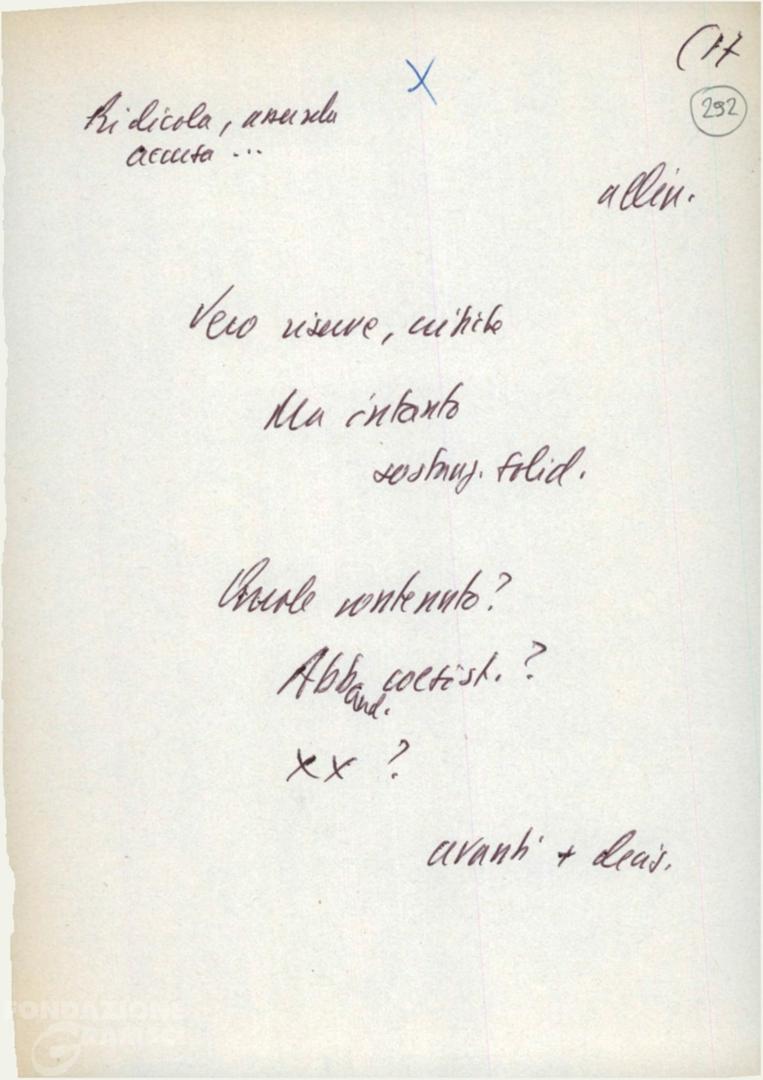 (17
X
292
Ridicola, assurda
accusa ...
allin.
Vero riserve, critiche
Ma intanto
sosteng. solid.
Quale contenuto?
Abband. coesist. ?
xx ?
avanti + decis.
FONDAZIONE
GRAMSCI